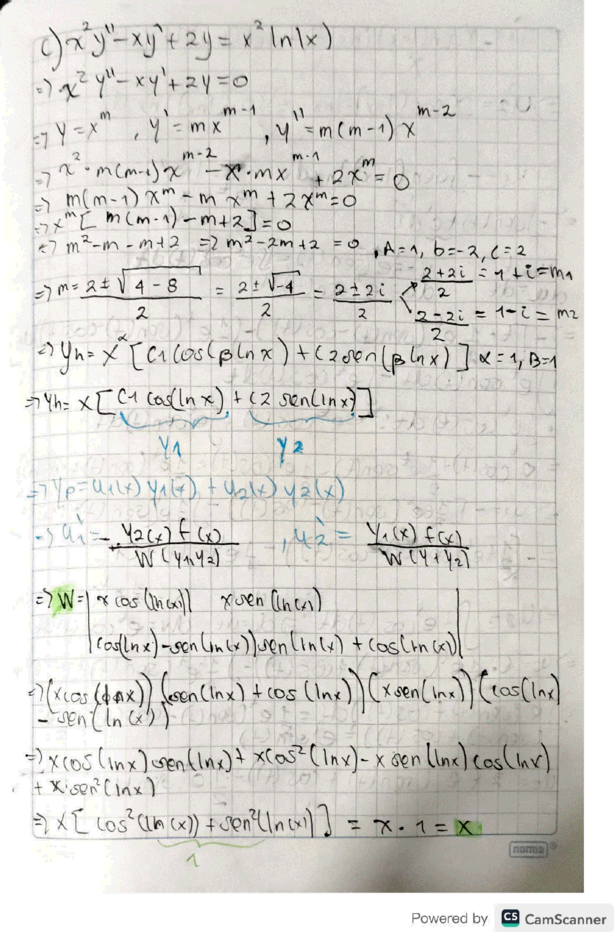 c) x²y'' - xy' + 2y = x² ln(x)
=> x²y'' - xy' + 2y = 0
=> y = x^m , y' = mx^(m-1) , y'' = m(m-1) x^(m-2)
=> x² · m(m-1) x^(m-2) - x · mx^(m-1) + 2x^m = 0
=> m(m-1) x^m - m x^m + 2x^m = 0
=> x^m [ m(m-1) - m + 2 ] = 0
=> m² - m - m + 2 => m² - 2m + 2 = 0 , A = 1, b = -2, c = 2
=> m = (2 ± √(4 - 8))/2 = (2 ± √-4)/2 = (2 ± 2i)/2 < (2+2i)/2 = 1 + i = m1
(2-2i)/2 = 1 - i = m2
=> yh = x^α [ C1 cos(β ln x) + C2 sen(β ln x) ] α = 1, B = 1
=> yh = x [ C1 cos(ln x) + C2 sen(ln x) ]
y1 y2
=> yp = u1(x) y1(x) + u2(x) y2(x)
=> u1' = - y2(x) f(x) / W(y1,y2) , u2' = y1(x) f(x) / W(y1,y2)
=> W = | x cos(ln(x)) x sen(ln(x)) |
| cos(ln x) - sen(ln(x)) sen(ln(x)) + cos(ln(x)) |
=> (x cos(ln x)) (sen(ln x) + cos(ln x)) (x sen(ln x)) (cos(ln x)
- sen(ln(x))
=> x cos(ln x) sen(ln x) + x cos²(ln x) - x sen(ln x) cos(ln x)
+ x · sen²(ln x)
=> x [ cos²(ln(x)) + sen²(ln(x)) ] = x · 1 = x
1
norma
Powered by CS CamScanner